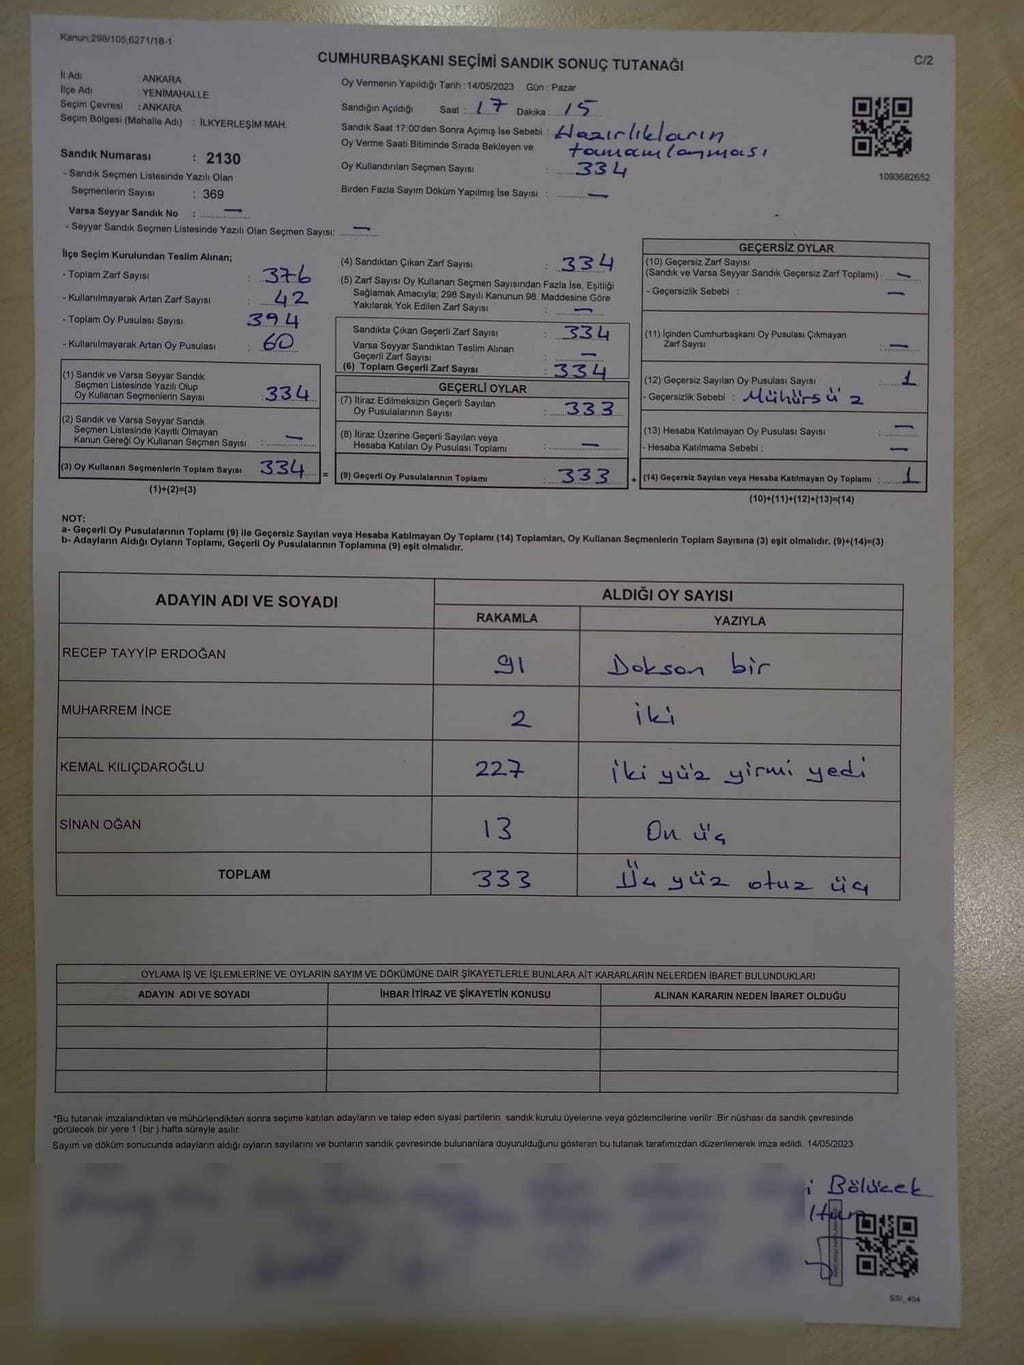 Kanun,298/105,6271/18-1
CUMHURBAŞKANI SEÇİMİ SANDIK SONUÇ TUTANAĞI
C/2
İl Adı : ANKARA
İlçe Adı : YENİMAHALLE
Seçim Çevresi : ANKARA
Seçim Bölgesi (Mahalle Adı) : İLKYERLEŞİM MAH.
Sandık Numarası : 2130
- Sandık Seçmen Listesinde Yazılı Olan
Seçmenlerin Sayısı : 369
Varsa Seyyar Sandık No : —
- Seyyar Sandık Seçmen Listesinde Yazılı Olan Seçmen Sayısı: —
Oy Vermenin Yapıldığı Tarih : 14/05/2023 Gün : Pazar
Sandığın Açıldığı Saat : 17 Dakika : 15
Sandık Saat 17:00'den Sonra Açımış İse Sebebi : Hazırlıkların
tamamlanması
Oy Verme Saati Bitiminde Sırada Bekleyen ve
Oy Kullandırılan Seçmen Sayısı : 334
Birden Fazla Sayım Döküm Yapılmış İse Sayısı : —
1093682652
İlçe Seçim Kurulundan Teslim Alınan;
- Toplam Zarf Sayısı : 376
- Kullanılmayarak Artan Zarf Sayısı : 42
- Toplam Oy Pusulası Sayısı : 394
- Kullanılmayarak Artan Oy Pusulası : 60
(1) Sandık ve Varsa Seyyar Sandık
Seçmen Listesinde Yazılı Olup
Oy Kullanan Seçmenlerin Sayısı : 334
(2) Sandık ve Varsa Seyyar Sandık
Seçmen Listesinde Kayıtlı Olmayan
Kanun Gereği Oy Kullanan Seçmen Sayısı : —
(3) Oy Kullanan Seçmenlerin Toplam Sayısı : 334 =
(1)+(2)=(3)
(4) Sandıktan Çıkan Zarf Sayısı : 334
(5) Zarf Sayısı Oy Kullanan Seçmen Sayısından Fazla İse, Eşitliği
Sağlamak Amacıyla; 298 Sayılı Kanunun 98. Maddesine Göre
Yakılarak Yok Edilen Zarf Sayısı : —
Sandıkta Çıkan Geçerli Zarf Sayısı : 334
Varsa Seyyar Sandıktan Teslim Alınan
Geçerli Zarf Sayısı : —
(6) Toplam Geçerli Zarf Sayısı : 334
GEÇERLİ OYLAR
(7) İtiraz Edilmeksizin Geçerli Sayılan
Oy Pusulalarının Sayısı : 333
(8) İtiraz Üzerine Geçerli Sayılan veya
Hesaba Katılan Oy Pusulası Toplamı : —
(9) Geçerli Oy Pusulalarının Toplamı : 333 +
GEÇERSİZ OYLAR
(10) Geçersiz Zarf Sayısı
(Sandık ve Varsa Seyyar Sandık Geçersiz Zarf Toplamı) : —
- Geçersizlik Sebebi : —
(11) İçinden Cumhurbaşkanı Oy Pusulası Çıkmayan
Zarf Sayısı : —
(12) Geçersiz Sayılan Oy Pusulası Sayısı : 1
- Geçersizlik Sebebi : Mühürsüz
(13) Hesaba Katılmayan Oy Pusulası Sayısı : —
- Hesaba Katılmama Sebebi : —
(14) Geçersiz Sayılan veya Hesaba Katılmayan Oy Toplamı : 1
(10)+(11)+(12)+(13)=(14)
NOT:
a- Geçerli Oy Pusulalarının Toplamı (9) ile Geçersiz Sayılan veya Hesaba Katılmayan Oy Toplamı (14) Toplamları, Oy Kullanan Seçmenlerin Toplam Sayısına (3) eşit olmalıdır. (9)+(14)=(3)
b- Adayların Aldığı Oyların Toplamı, Geçerli Oy Pusulalarının Toplamına (9) eşit olmalıdır.
ADAYIN ADI VE SOYADI ALDIĞI OY SAYISI
RAKAMLA YAZIYLA
RECEP TAYYİP ERDOĞAN 91 Doksan bir
MUHARREM İNCE 2 iki
KEMAL KILIÇDAROĞLU 227 iki yüz yirmi yedi
SİNAN OĞAN 13 On üç
TOPLAM 333 Üç yüz otuz üç
OYLAMA İŞ VE İŞLEMLERİNE VE OYLARIN SAYIM VE DÖKÜMÜNE DAİR ŞİKAYETLERLE BUNLARA AİT KARARLARIN NELERDEN İBARET BULUNDUKLARI
ADAYIN ADI VE SOYADI İHBAR İTİRAZ VE ŞİKAYETİN KONUSU ALINAN KARARIN NEDEN İBARET OLDUĞU
*Bu tutanak imzalandıktan ve mühürlendikten sonra seçime katılan adayların ve talep eden siyasi partilerin sandık kurulu üyelerine veya gözlemcilerine verilir. Bir nüshası da sandık çevresinde
görülecek bir yere 1 (bir ) hafta süreyle asılır.
Sayım ve döküm sonucunda adayların aldığı oyların sayılarını ve bunların sandık çevresinde bulunanlara duyurulduğunu gösteren bu tutanak tarafımızdan düzenlenerek imza edildi. 14/05/2023
i Bölücek
SSİ_404